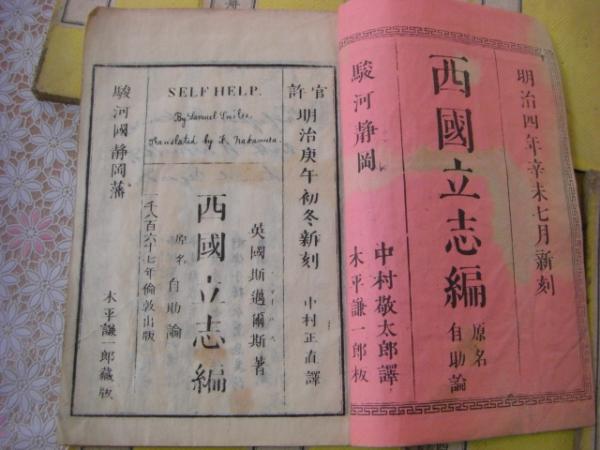 明治四年辛未七月新刻
西國立志編
原名
自助論
中村敬太郎譯
駿河靜岡
木平謙一郎板
官許
明治庚午初冬新刻
中村正直譯
SELF HELP.
By Samuel Smiles.
Translated by K. Nakamura.
英國斯邁爾斯著
西國立志編
原名
自助論
一千八百六十七年倫敦出版
駿河國靜岡藩
木平謙一郎藏版